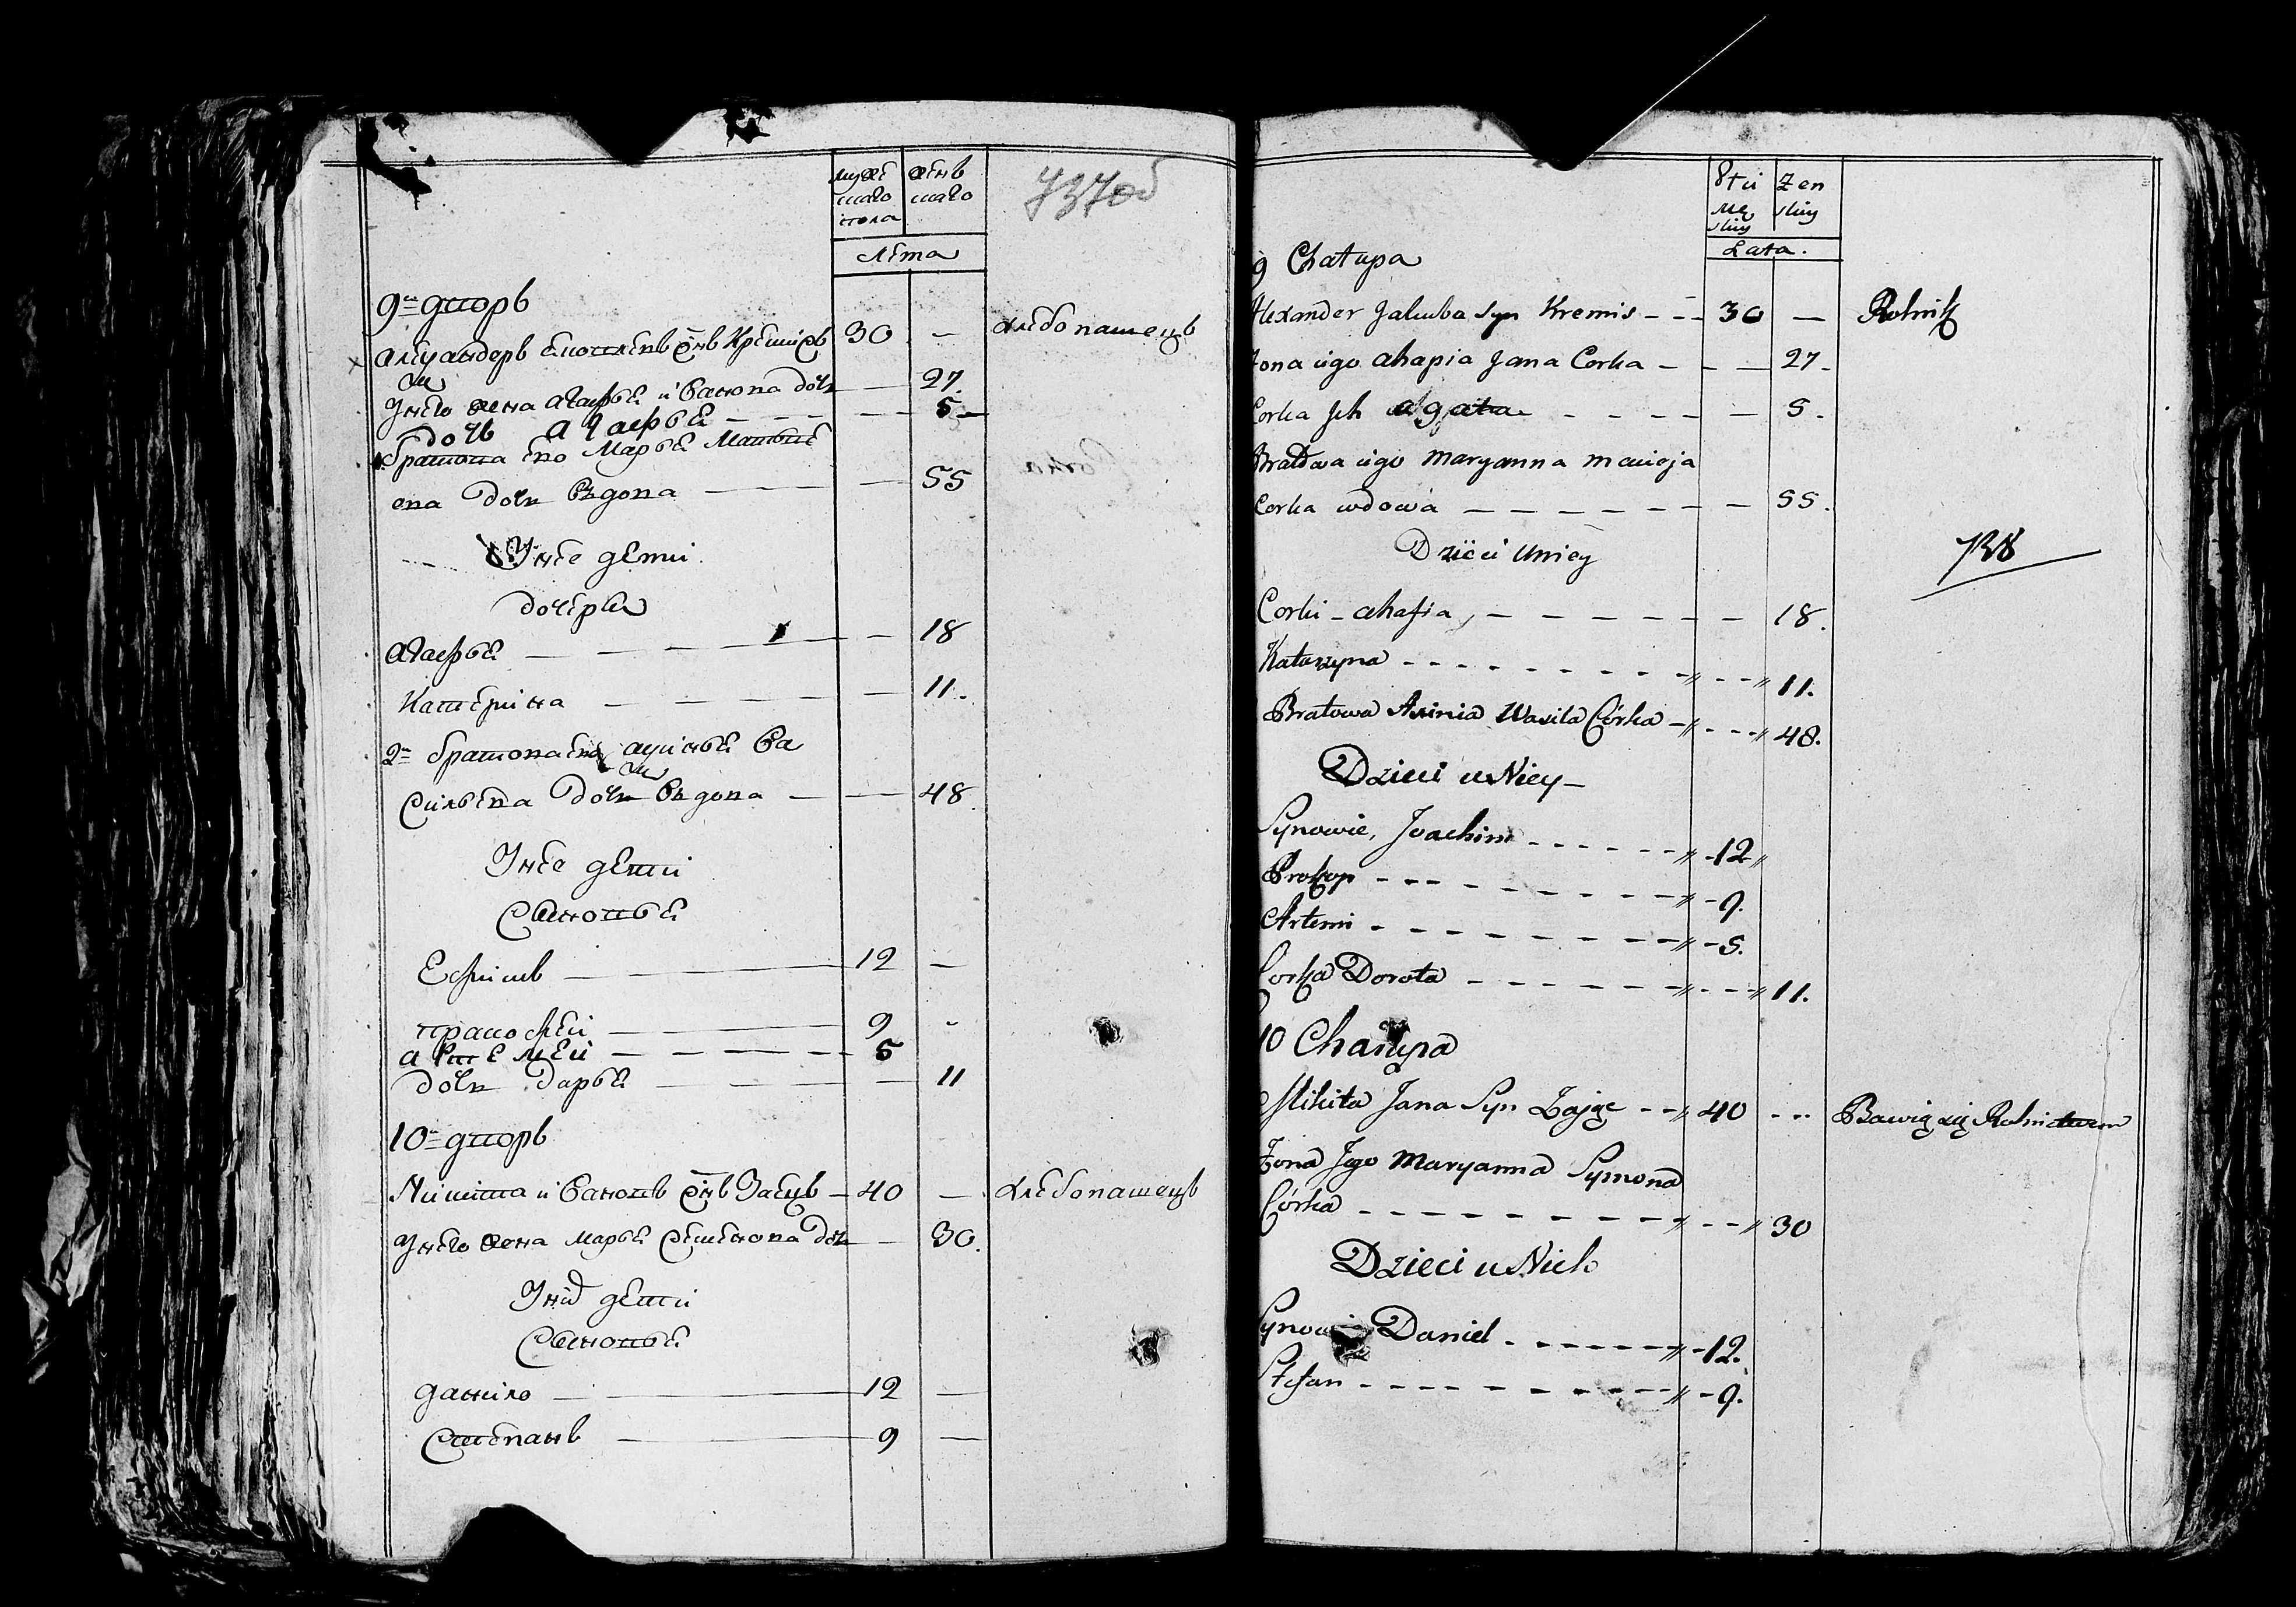 мужескаго пола
женскаго
лета
737об
9й дворъ
Александеръ Яковлевъ снъ Кремисъ 30 — хлебопашецъ
У него жена Агафья Иванова дочь — 27.
дочь Агафья — — — — 5 —
Братова его Марья Матвее
ева дочь вдова — — 55
У нее дети
дочери
Агафья — — — — — 18
Катерина — — — — 11.
2я братова его Аксинья Ва
сильева дочь вдова — — 48
У нее дети
Сыновья
Ефимъ — 12 —
Прокофей — 9 -
Артемей — — — — 5
дочь Дарья — — — 11
10й дворъ
Никита Ивановъ снъ Заецъ — 40 — хлебопашецъ
У него жена Марья Семенова дочь — 30.
У них дети
Сыновья
Данило — — 12 —
Степанъ — 9 —
Płci Męskiey
Zenskiey
Lata.
9 Chałupa
Alexander Jakuba syn Kremis - - - 30 — Rolnik
Żona iego Ahapia Jana Corka - - — 27.
Corka Jch Agata - - - - — 5.
Bratowa iego Maryanna Macieja
Corka wdowa — — — — — — — 55.
Dzieci Uniey
738
Corki - Ahafia, — — — — — — 18.
Katarzyna - - - - - - - - - 11.
Bratowa Axinia Wasila Córka - - - - 48.
Dzieci u Niey -
Synowie, Joachim - - - - - - - 12
Prokop - - - - - - - - - 9.
Artemi - - - - - - - - - 5.
Corka Dorota - - - - - - - - - 11.
10 Chałupa
Mikita Jana Syn Zając - - - 40 - - - Bawię się Rolnictwem
Żona Jego Maryanna Symona
Córka - - - - - - - - - - - 30
Dzieci u Nich
Synowie Daniel - - - - - - - - 12.
Stefan - - - - - - - - - - 9.